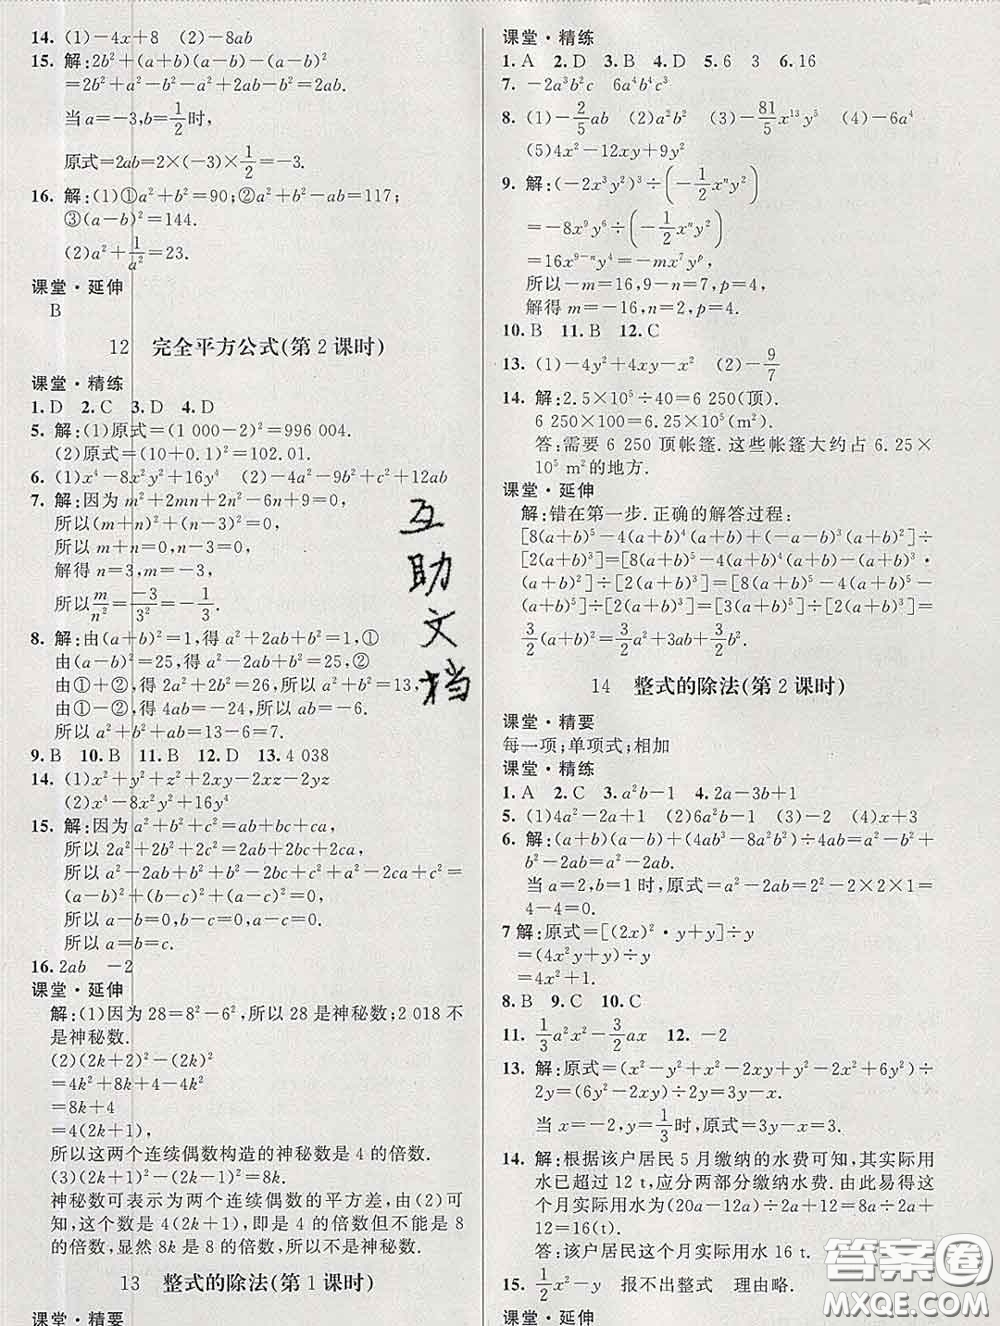 14. (1)-4x+8　(2)-8ab
15. 解:2b²+(a+b)(a-b)-(a-b)²
=2b²+a²-b²-a²+2ab-b²=2ab.
当a=-3,b=1/2时,
原式=2ab=2×(-3)×1/2=-3.
16. 解:(1)①a²+b²=90;②a²+b²-ab=117;
③(a-b)²=144.
(2)a²+1/a²=23.
课堂·延伸
B
12　完全平方公式(第2课时)
课堂·精练
1. D　2. C　3. D　4. D
5. 解:(1)原式=(1 000-2)²=996 004.
(2)原式=(10+0.1)²=102.01.
6. (1)x⁴-8x²y²+16y⁴　(2)-4a²-9b²+c²+12ab
7. 解:因为m²+2mn+2n²-6n+9=0,
所以(m+n)²+(n-3)²=0,
所以m+n=0,n-3=0,
解得n=3,m=-3,
所以m/n²=-3/3²=-1/3.
8. 解:由(a+b)²=1,得a²+2ab+b²=1,①
由(a-b)²=25,得a²-2ab+b²=25,②
由①+②,得2a²+2b²=26,所以a²+b²=13,
由①-②,得4ab=-24,所以ab=-6.
所以a²+b²+ab=13-6=7.
9. B　10. B　11. B　12. D　13. 4 038
14. (1)x²+y²+z²+2xy-2xz-2yz
(2)x⁴-8x²y²+16y⁴
15. 解:因为a²+b²+c²=ab+bc+ca,
所以2a²+2b²+2c²=2ab+2bc+2ca,
所以a²-2ab+b²+b²-2bc+c²+a²-2ca+c²=
(a-b)²+(b-c)²+(c-a)²=0,
所以a-b=0,b-c=0,c-a=0.
所以a=b=c.
16. 2ab　-2
课堂·延伸
解:(1)因为28=8²-6²,所以28是神秘数;2 018不是神秘数.
(2)(2k+2)²-(2k)²
=4k²+8k+4-4k²
=8k+4
=4(2k+1),
所以这两个连续偶数构造的神秘数是4的倍数.
(3)(2k+1)²-(2k-1)²=8k.
神秘数可表示为两个连续偶数的平方差,由(2)可
知,这个数是4(2k+1),即是4的倍数但不能是8
的倍数,显然8k是8的倍数,所以不是神秘数.
13　整式的除法(第1课时)
课堂·精要
课堂·精练
1. A　2. D　3. B　4. D　5. 6　3　6. 16
7. -2a³b²c　6a⁴b⁴c³
8. (1)-2/5ab　(2)a²b²　(3)-81/5x¹³y⁵　(4)-6a⁴
(5)4x²-12xy+9y²
9. 解:(-2x³y²)³÷(-1/2xⁿy²)
=-8x⁹y⁶÷(-1/2xⁿy²)
=16x⁹⁻ⁿy⁴=-mx⁷yᵖ,
所以-m=16,9-n=7,p=4,
解得m=-16,n=2,p=4.
10. B　11. B　12. C
13. (1)-4y²+4xy-x²　(2)-9/7
14. 解:2.5×10⁵÷40=6 250(顶).
6 250×100=6.25×10⁵(m²)
答:需要6 250顶帐篷.这些帐篷大约占6.25×
10⁵ m²的地方.
课堂·延伸
解:错在第一步.正确的解答过程:
[8(a+b)⁵-4(a+b)⁴(a+b)+(-a-b)³(a+b)²]÷
[2(a+b)³]=[8(a+b)⁵-4(a+b)⁵-(a+b)³·
(a+b)²]÷[2(a+b)³]=[8(a+b)⁵-4(a+b)⁵-
(a+b)⁵]÷[2(a+b)³]=[3(a+b)⁵]÷[2(a+b)³]=
3/2(a+b)²=3/2a²+3ab+3/2b².
14　整式的除法(第2课时)
课堂·精要
每一项;单项式;相加
课堂·精练
1. A　2. C　3. a²b-1　4. 2a-3b+1
5. (1)4a²-2a+1　(2)6a²b-1　(3)-2　(4)x+3
6. 解:(a+b)(a-b)+(4ab³-8a²b²)÷4ab=a²-b²+
b²-2ab=a²-2ab.
当a=2,b=1时,原式=a²-2ab=2²-2×2×1=
4-4=0.
7 解:原式=[(2x)²·y+y]÷y
=(4x²y+y)÷y
=4x²+1.
8. B　9. C　10. C
11. 1/3a²x²-3/2ax　12. -2
13. 解:原式=(x²-y²+x²-2xy+y²-2x²+6y²)÷
2y=(6y²-2xy)÷2y=3y-x.
当x=-2,y=1/3时,原式=3y-x=3.
14. 解:根据该户居民5月缴纳的水费可知,其实际用
水已超过12 t,应分两部分缴纳水费.由此易得这
个月的实际用水为(20a-12a)÷2a+12=8a÷2a
+12=16(t).
答:该户居民这个月实际用水16 t.
15. 1/2x²-y　报不出整式　理由略.
课堂·延伸
互助文档
答案圈
MXQE.COM